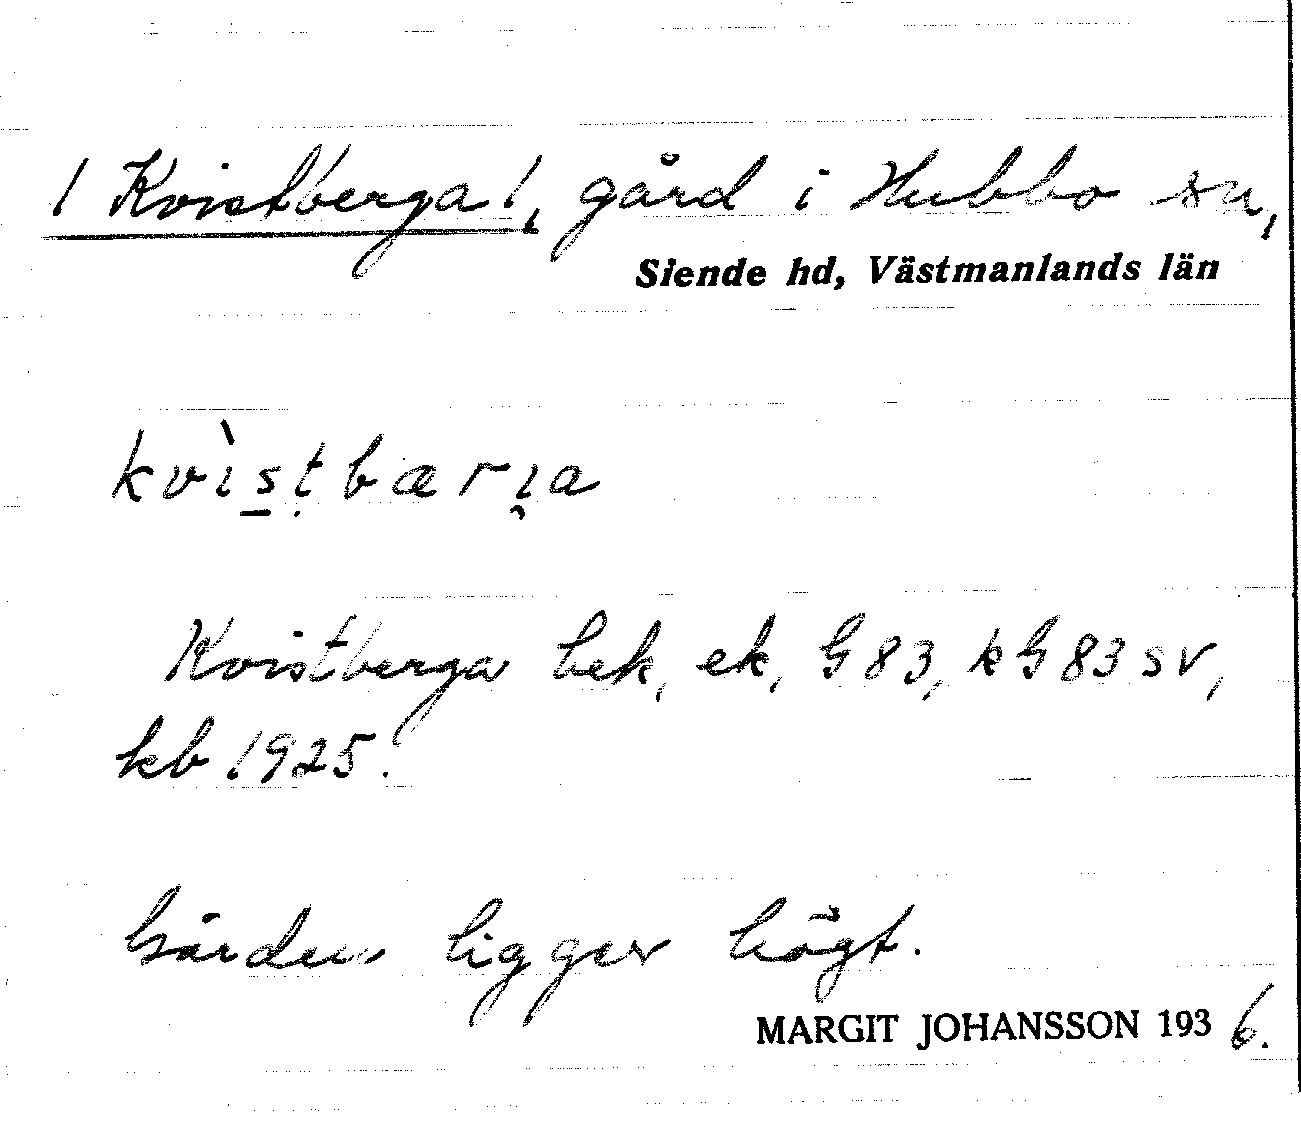 / Kvistberga /, gård i Hubbo sn,
Siende hd, Västmanlands län
kvìs̠ṭbærı̯a
Kvistberga bek, ek, G 83, k G 83 sv,
kb 1925.
Gården ligger högt.
MARGIT JOHANSSON 1936.